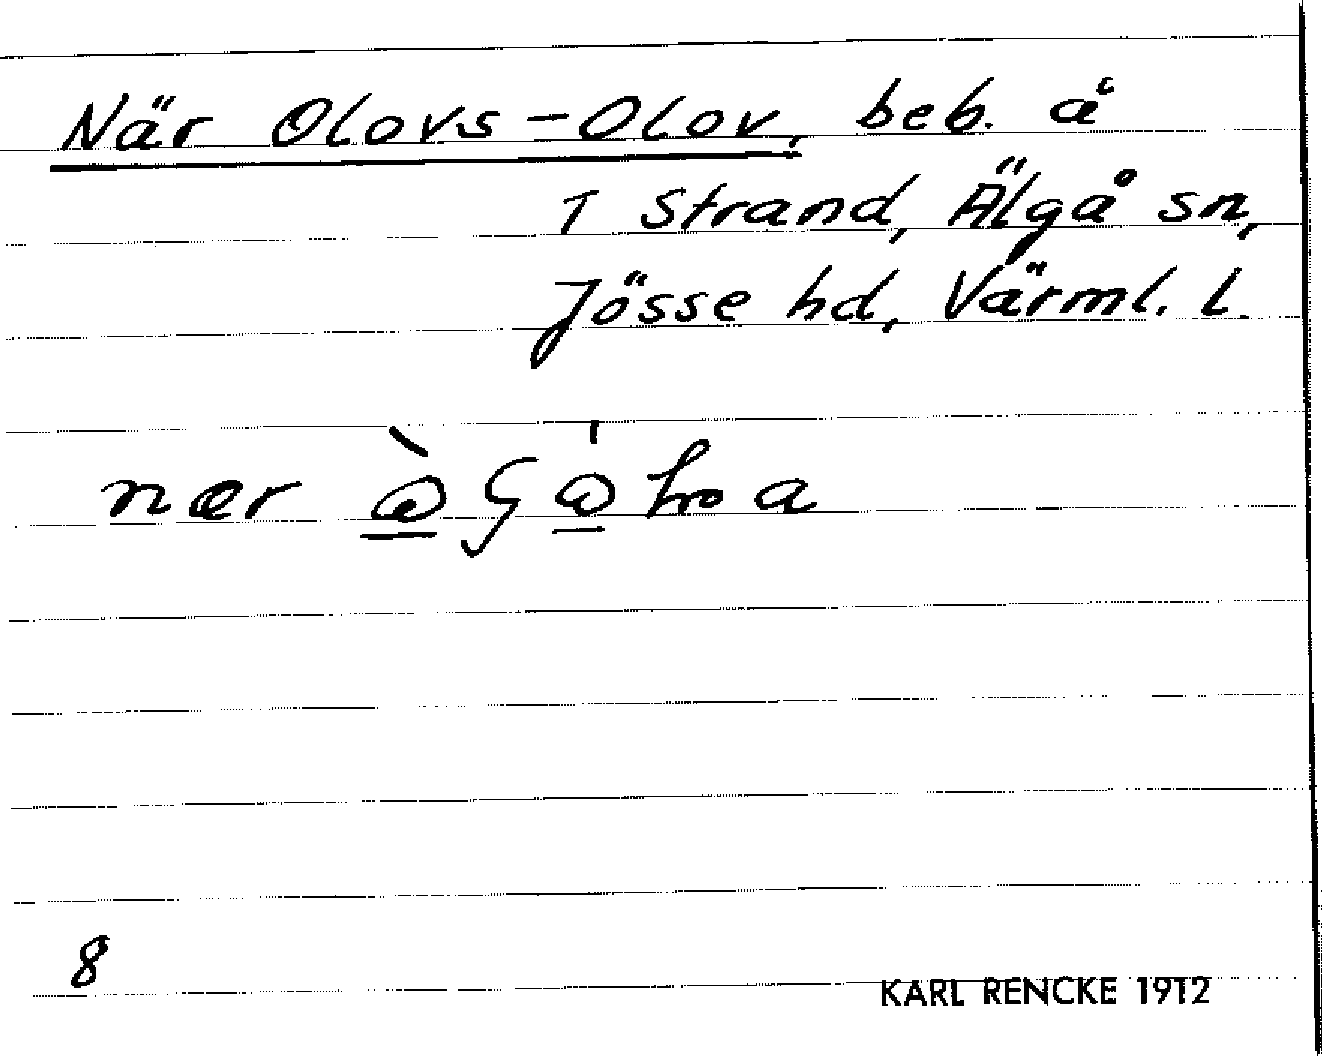 När Olovs-Olov, beb. å
1 Strand, Älgå sn,
Jösse hd, Värml. l.
nær
8
KARL RENCKE 1912